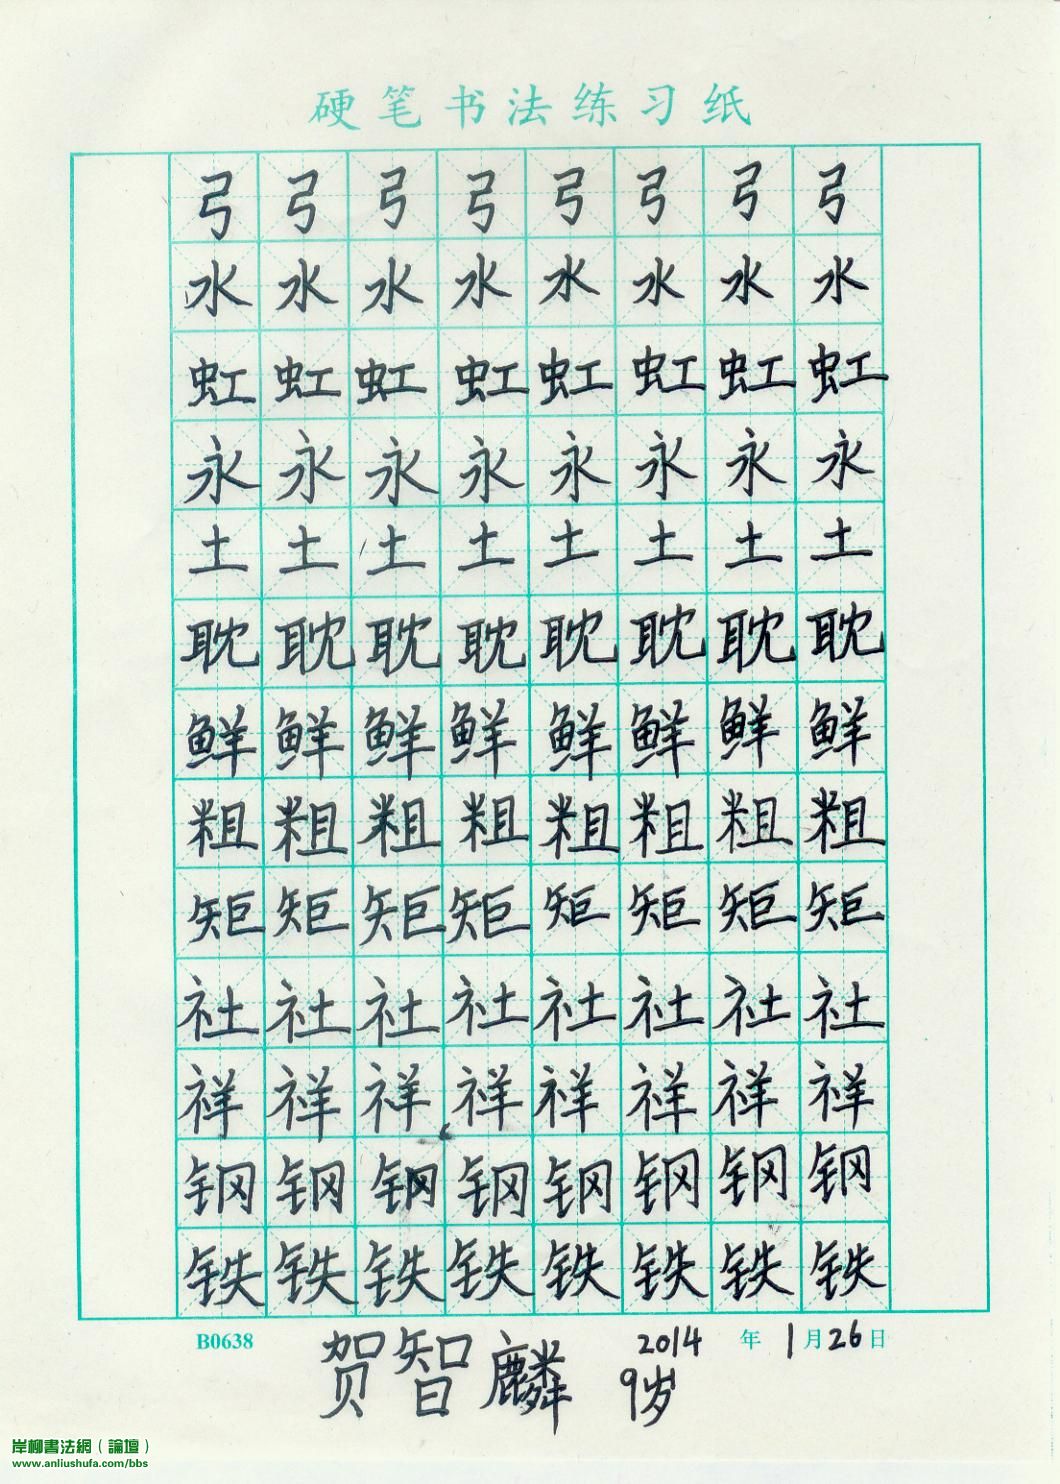 硬笔书法练习纸
弓弓弓弓弓弓弓弓
水水水水水水水水
虹虹虹虹虹虹虹虹
永永永永永永永永
土土土土土土土土
耽耽耽耽耽耽耽耽
鲜鲜鲜鲜鲜鲜鲜鲜
粗粗粗粗粗粗粗粗
矩矩矩矩矩矩矩矩
社社社社社社社社
祥祥祥祥祥祥祥祥
钢钢钢钢钢钢钢钢
铁铁铁铁铁铁铁铁
B0638 贺智麟 2014年1月26日
9岁
岸柳書法網（論壇）
www.anliushufa.com/bbs